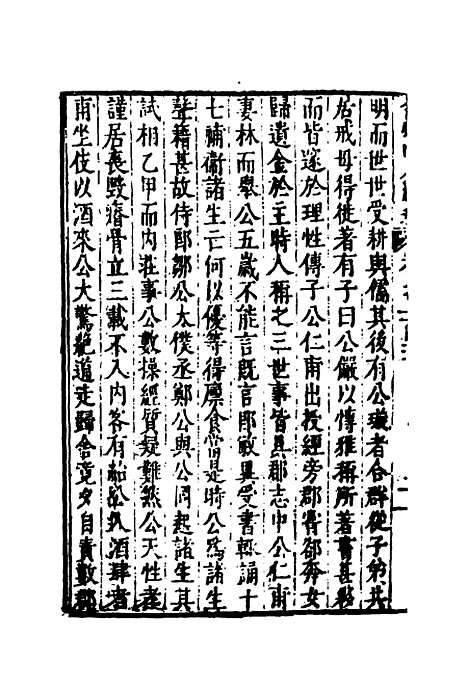 明而世世受耕與儒其後有公瓛者合群從子弟共
居戒毋得徙著有子曰公儼以博雅稱所著書甚夥
而皆邃於理性傳子公仁甫出授經旁郡有部奔女
歸遺金於主時人稱之三世事皆具郡志中公仁甫
妻林而舉公五歲不能言旣言郎敏異受書輒誦十
七補衛諸生亡何以優等得廩食當是時公為諸生
聲藉甚故侍郎鄒公太僕丞鄭公與公同起諸生其
試相乙甲而內莊事公數操經質疑難然公天性孝
謹居喪毀瘠骨立三載不入內客有紿公入酒肆者
甫坐伎以酒來公大驚絶道走歸舍竟夕自責數郡